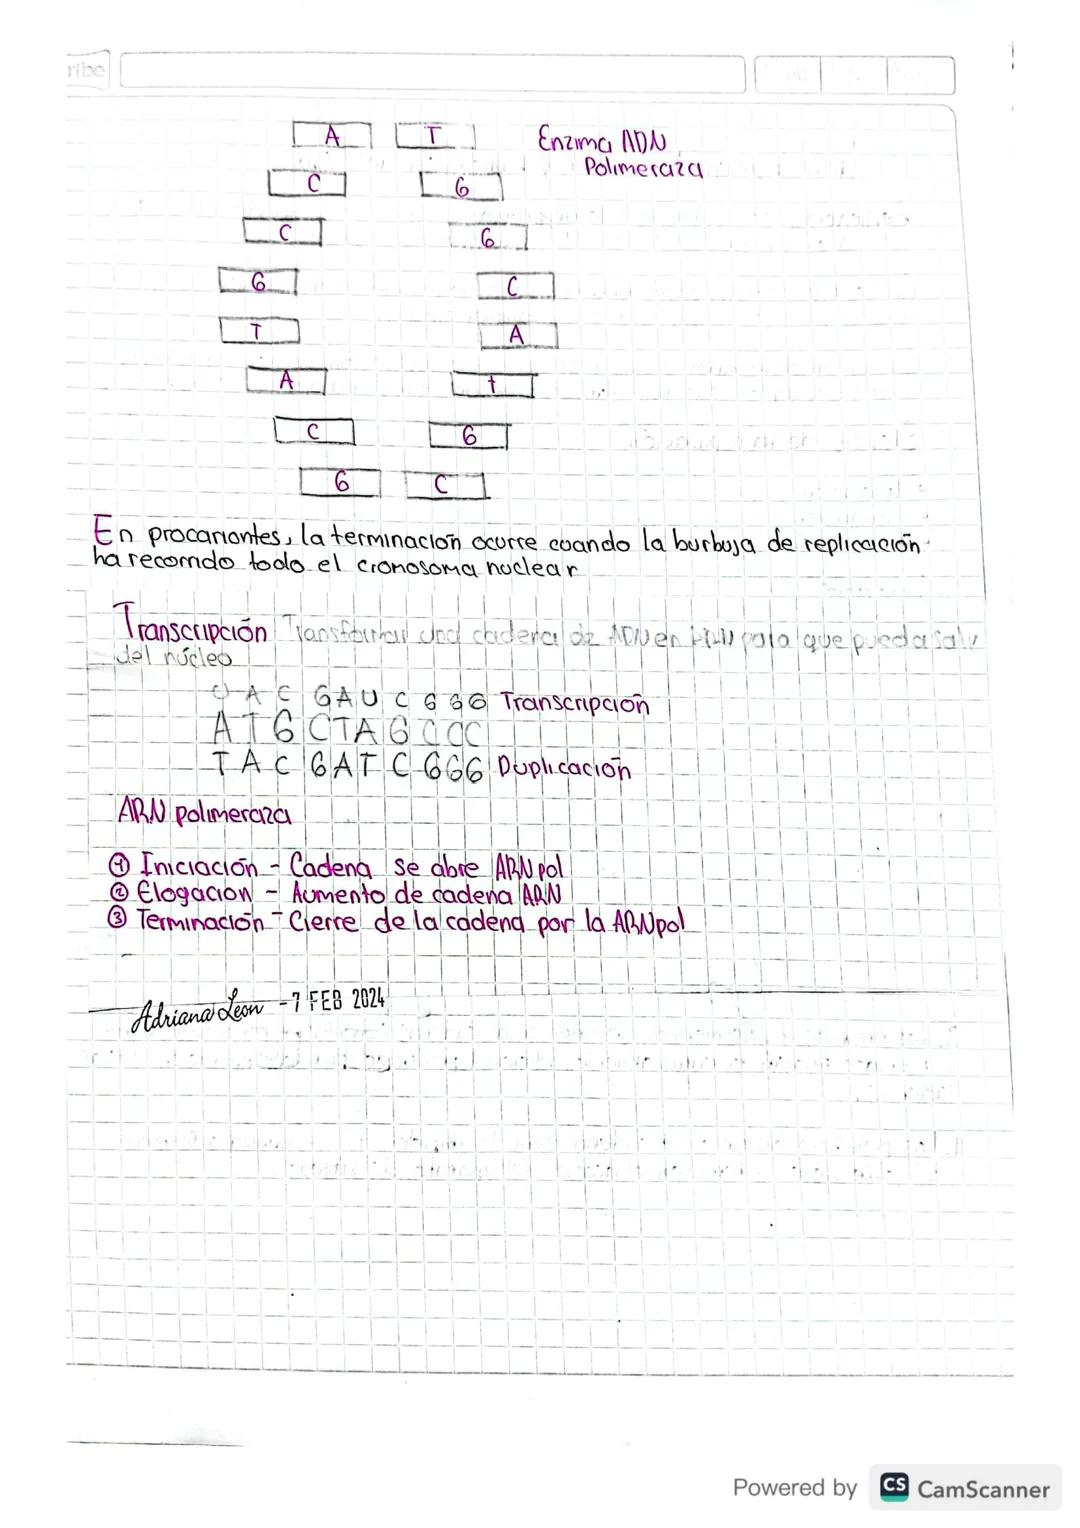 ribe
A T Enzima ADN
Polimeraza
C G
C G
G C
T A
A t
C G
G C
En procariontes, la terminación ocurre cuando la burbuja de replicación
ha recorrido todo el cromosoma nuclear
Transcripción Transformar una cadena de ADN en ARN para que pueda salir
del núcleo
U A C G A U C G G G Transcripción
A T G C T A G C C C
T A C G A T C G G G Duplicación
ARN polimeraza
① Iniciación - Cadena se abre ARN pol
② Elogación - Aumento de cadena ARN
③ Terminación - Cierre de la cadena por la ARNpol
Adriana Leon - 7 FEB 2024
Powered by CS CamScanner